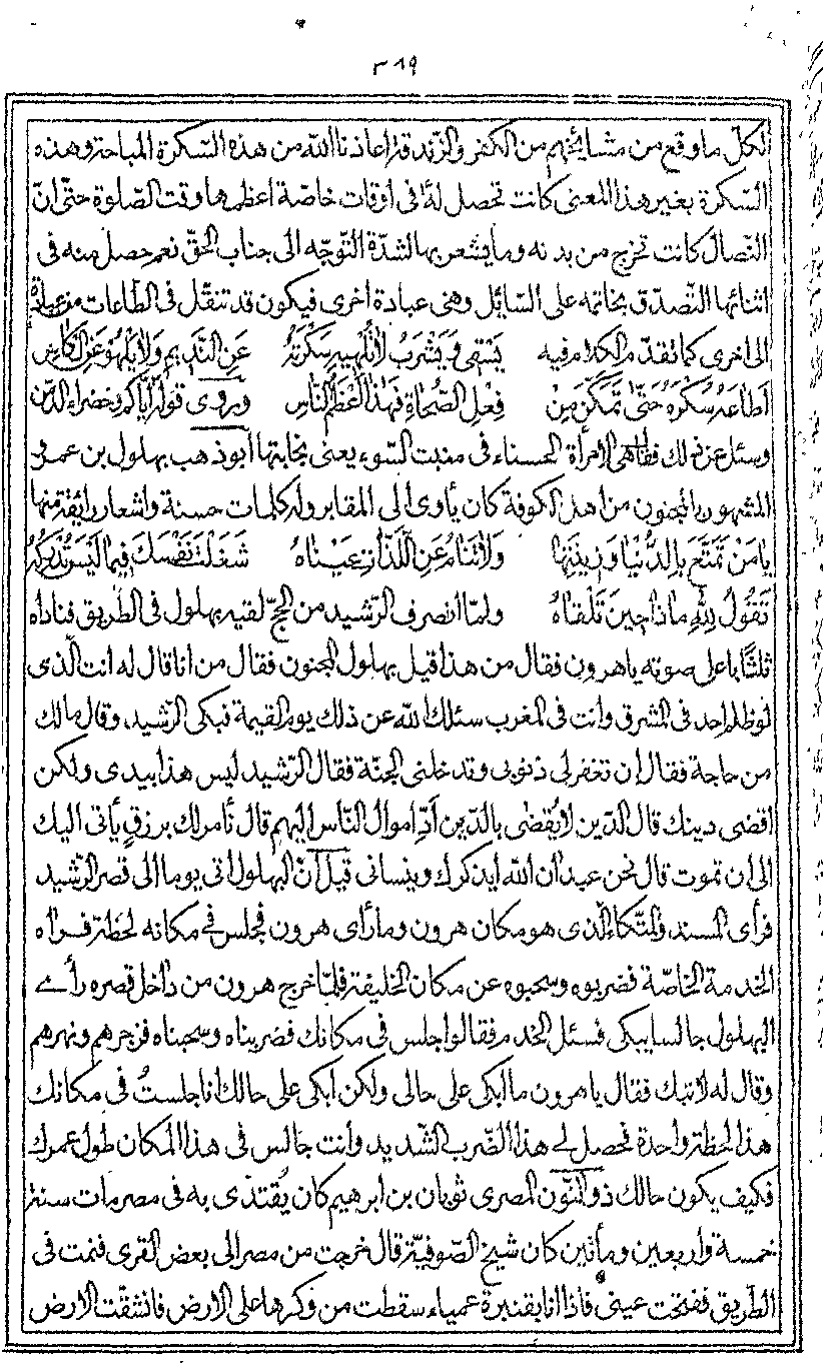 ٣٨٩
لكلّ ما وقع من مشايخهم من الكفر والزّندقة اعاذنا اللّه من هذه السّكرة المباحة وهذه
السّكرة بغير هذا المعنى كانت تحصل له فى اوقات خاصّة اعظمها وقت الصّلوة حتّى انّ
النّصال كانت تخرج من بدنه وما يشعر بها لشدّة التّوجّه الى جناب الحقّ نعم حصل منه فى
اثنائها التّصدّق بخاتمه على السّائل وهى عبادة اخرى فيكون قد تنقّل فى الطّاعات من عبادة
الى اخرى كما تقدّم الكلام فيه يَسْقى وَيَشْرَبُ لا تُلْهيهِ سَكْرَتُهُ عَنِ النَّديمِ وَلا يَلْهُو عَنِ الْكَاسِ
اَطاعَهُ سُكْرُهُ حَتّى تَمَكَّنَ مِنْ فِعْلِ الصُّحاةِ فَهذا اَعْظَمُ النّاسِ وروى قوله ايّاكم وخضراء الدّمن
وسئل عن ذلك فقال هى الامرأة الحسناء فى منبت السّوء يعنى نجابتها ابو ذهب بهلول بن عمرو
المشهور بالمجنون من اهل الكوفة كان يأوى الى المقابر وله كلمات حسنة واشعار رايقة منها
يا مَنْ تَمَتَّعَ بِالدُّنْيا وَزينَتِها وَلا تَنامُ عَنِ اللَّذّاتِ عَيْناهُ شَغَلْتَ نَفْسَكَ فيما لَيْسَ تُدْرِكُهُ
تَقُولُ لِلّهِ ماذا حينَ تَلْقاهُ ولمّا انصرف الرّشيد من الحجّ لقيه بهلول فى الطّريق فناداه
ثلثًا باعلى صوته يا هرون فقال من هذا قيل بهلول المجنون فقال من انا قال له انت الّذى
لو ظلم احد فى المشرق وانت فى المغرب سئلك اللّه عن ذلك يوم القيمة فبكى الرّشيد وقال ما لك
من حاجة فقال ان تغفر لى ذنوبى وتدخلنى الجنّة فقال الرّشيد ليس هذا بيدى ولكن
اقضى دينك قال الدّين لا يُقضى بالدّين اَدِّ اموال النّاس اليهم قال نأمر لك برزق يأتى اليك
الى ان تموت قال نحن عبدان اللّه ايذكرك وينسانى قيل انّ البهلول اتى يوما الى قصر الرّشيد
فرأى المسند والمتّكاء الّذى هو مكان هرون وما رأى هرون فجلس فى مكانه لحظة فراه
الخدمة الخاصّة فضربوه وسحبوه عن مكان الخليفة فلمّا خرج هرون من داخل قصره رأى
البهلول جالسا يبكى فسئل الخدم فقالوا جلس فى مكانك فضربناه وسحبناه فزجرهم ونهرهم
وقال له لا تبك فقال يا هرون ما ابكى على حالى ولكن ابكى على حالك انا جلستُ فى مكانك
هذا لحظة واحدة فحصل لى هذا الضّرب الشّديد وانت جالس فى هذا المكان طول عمرك
فكيف يكون حالك ذو النّون المصرى ثوبان بن ابرهيم كان يُقتدى به فى مصر مات سنة
خمسة واربعين ومأتين كان شيخ الصّوفيّة قال خرجت من مصر الى بعض القرى فنمت فى
الطّريق ففتحت عينى فاذا انا بقنبرة عمياء سقطت من وكرها على الارض فانشقّت الارض